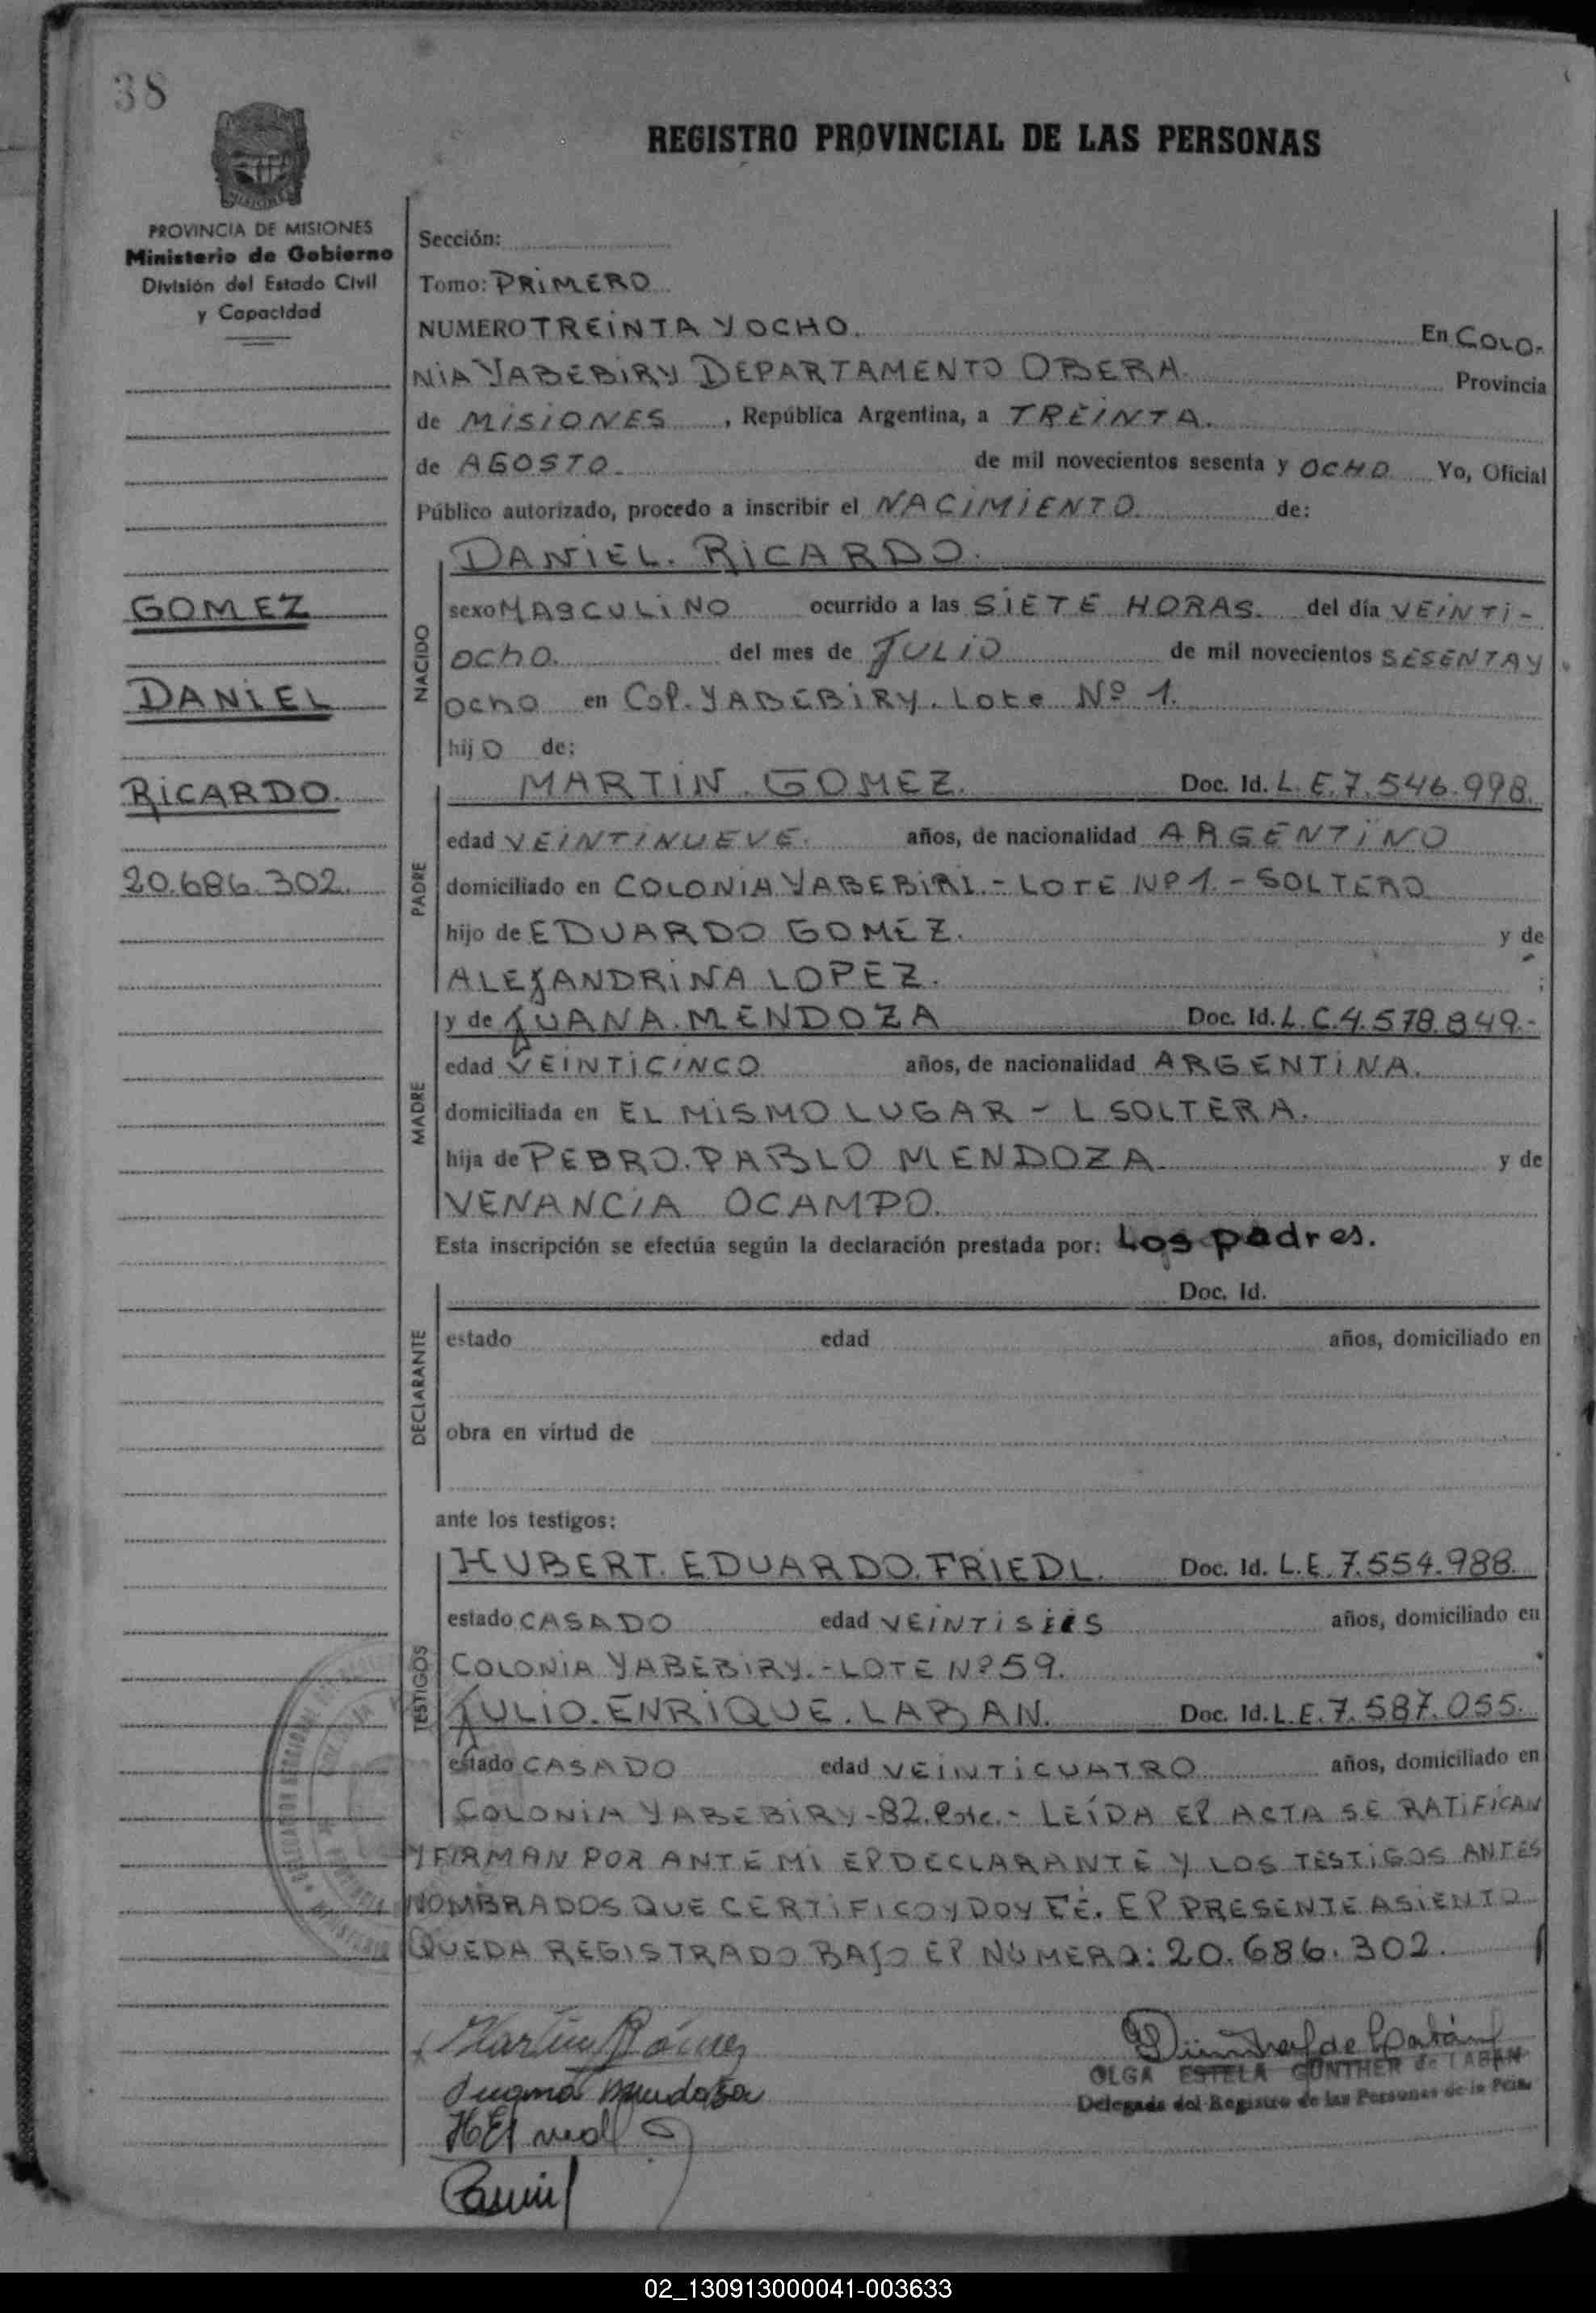 38
REGISTRO PROVINCIAL DE LAS PERSONAS
PROVINCIA DE MISIONES
Ministerio de Gobierno
División del Estado Civil
y Capacidad
GOMEZ
DANIEL
RICARDO.
20.686.302.
Sección:
Tomo: PRIMERO
NUMERO TREINTA Y OCHO. En COLO-
NIA YABEBIRY DEPARTAMENTO OBERA. Provincia
de MISIONES, República Argentina, a TREINTA.
de AGOSTO. de mil novecientos sesenta y OCHO Yo, Oficial
Público autorizado, procedo a inscribir el NACIMIENTO de:
NACIDO
DANIEL. RICARDO.
sexo MASCULINO ocurrido a las SIETE HORAS. del día VEINTI-
OCHO. del mes de JULIO de mil novecientos SESENTA Y
OCHO en Col. YABEBIRY. Lote Nº 1.
hijO de:
PADRE
MARTIN. GOMEZ. Doc. Id. L.E.7.546.998.
edad VEINTINUEVE. años, de nacionalidad ARGENTINO
domiciliado en COLONIA YABEBIRI.- LOTE Nº 1.- SOLTERO
hijo de EDUARDO GOMEZ. y de
ALEJANDRINA LOPEZ. ;
MADRE
y de JUANA. MENDOZA Doc. Id. L.C.4.578.849.-
edad VEINTICINCO años, de nacionalidad ARGENTINA.
domiciliada en EL MISMO LUGAR - L SOLTERA.
hija de PEDRO. PABLO MENDOZA y de
VENANCIA OCAMPO.
Esta inscripción se efectúa según la declaración prestada por: Los padres.
DECLARANTE
Doc. Id.
estado edad años, domiciliado en
obra en virtud de
ante los testigos:
TESTIGOS
HUBERT. EDUARDO. FRIEDL. Doc. Id. L.E. 7.554.988.
estado CASADO edad VEINTISEIS años, domiciliado en
COLONIA YABEBIRY.- LOTE Nº 59.
JULIO. ENRIQUE. LABAN. Doc. Id. L.E. 7.587.055.
estado CASADO edad VEINTICUATRO años, domiciliado en
COLONIA YABEBIRY-82. Lote.- LEÍDA El ACTA SE RATIFICAN
Y FIRMAN POR ANTE MI El DECLARANTE Y LOS TESTIGOS ANTES
NOMBRADOS QUE CERTIFICO Y DOY FÉ. El PRESENTE ASIENTO
QUEDA REGISTRADO BAJO El NUMERO: 20.686.302.
Martin Gómez
OLGA ESTELA GÜNTHER de LABAN
Delegada del Registro de las Personas de la Pcia.
02_130913000041-003633